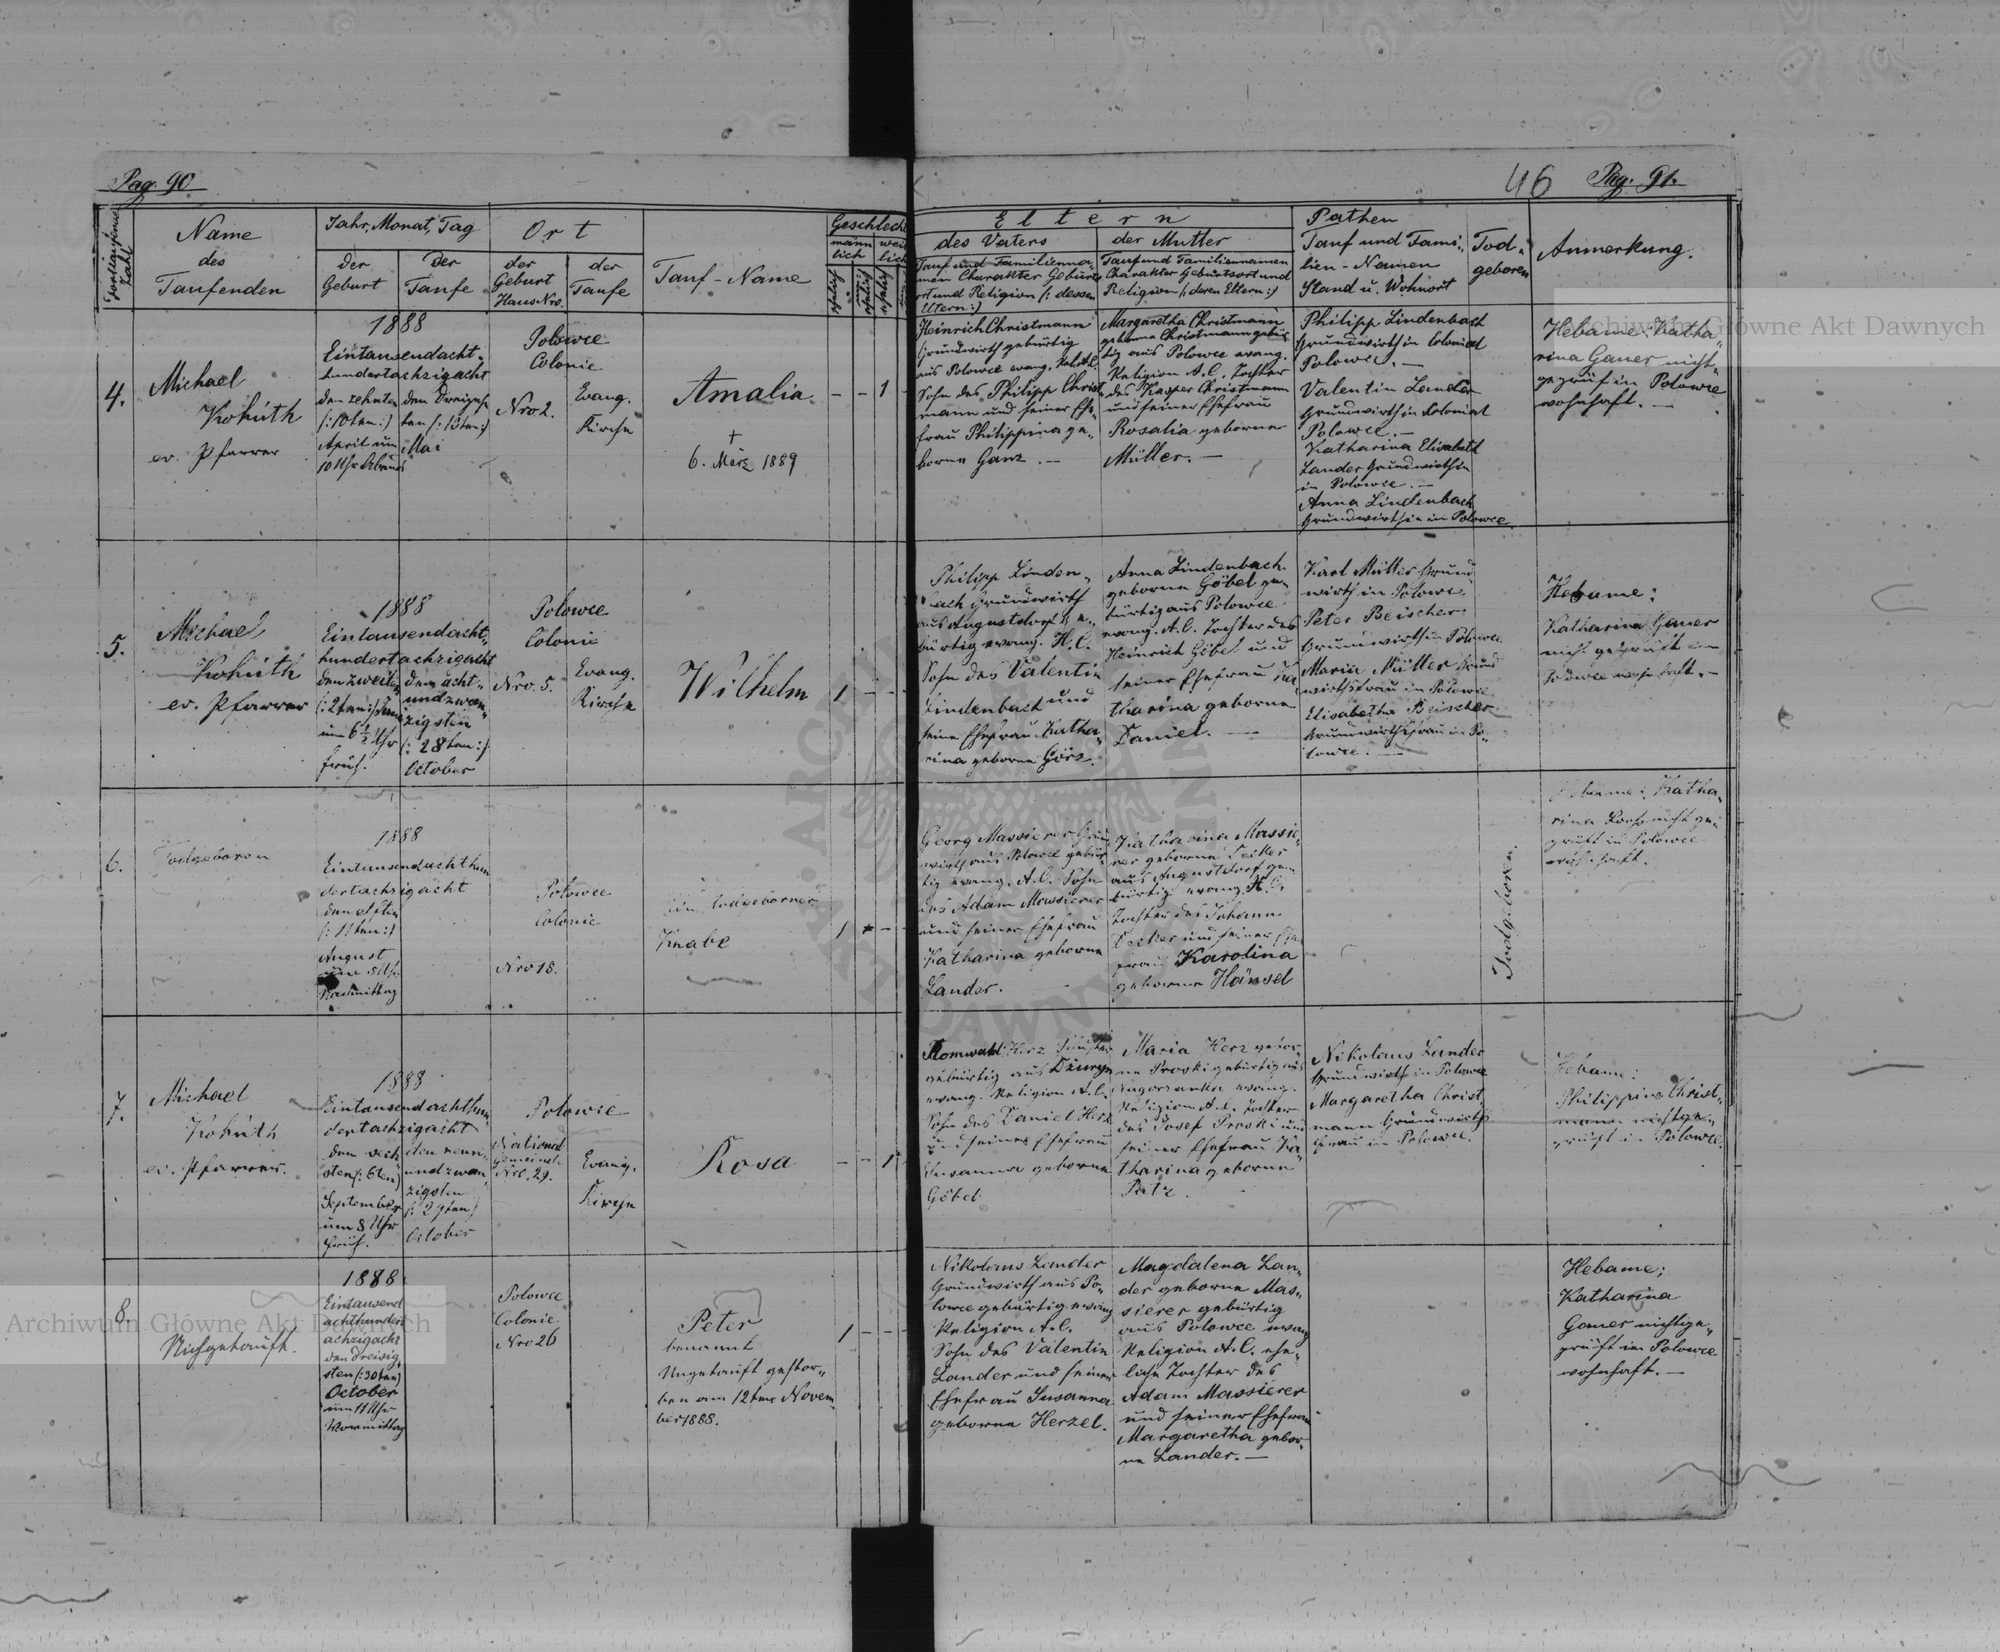 Pag. 90
46 Pag. 91.
Fortlaufende Zahl
Name
des
Taufenden
Jahr, Monat, Tag
der
Geburt
der
Taufe
Ort
der
Geburt
Haus Nro.
der
Taufe
Tauf-Name
Geschlecht
männ
lich
weib
lich
Eltern
des Vaters
Tauf und Familienna-
men Charakter Geburts
ort und Religion (: dessen
Eltern :)
der Mutter
Tauf und Familiennamen
Charakter Geburtsort und
Religion (: deren Eltern :)
Pathen
Tauf und Fami-
lien-Namen
Stand u. Wohnort
Tod-
geboren
Anmerkung.
4.
Michael
Kohúth
ev. Pfarrer
1888
Eintausendacht-
hundertachzigacht
den zehnten
(: 10ten :)
April um
10 Uhr Abends
den Dreizehn
ten (: 13ten :)
Mai
Polowce
Colonie
Nro 2.
Evang.
Kirche
Amalia
+
6. März 1889
- - 1 -
Heinrich Christmann
Grundwirth gebürtig
aus Polowce evang. Rel. A.C.
Sohn des Philipp Christ-
mann und seiner Ehe-
frau Philippina ge-
borne Ganz. —
Margaretha Christmann
geborne Christmann gebür
tig aus Polowce evang.
Religion A.C. Tochter
des Kasper Christmann
und seiner Ehefrau
Rosalia geborne
Müller. —
Philipp Lindenbach
Grundwirth in Colonie
Polowce. —
Valentin Lander
Grundwirth in Colonie
Polowce. —
Katharina Elisabeth
Lander Grundwirthin
in Polowce. —
Anna Lindenbach
Grundwirthin in Polowce.
Hebame: Katha-
rina Gauer nicht-
geprüf in Polowce
wohnhaft. —
5.
Michael
Kohúth
ev. Pfarrer
1888
Eintausendacht-
hundertachzigacht
den zweiten
(: 2ten :)
um 6½ Uhr
früh.
den acht-
undzwan-
zigsten
(: 28ten :)
October
Polowce
Colonie
Nro. 5.
Evang.
Kirche
Wilhelm
1 - -
Philipp Linden-
bach Grundwirth
aus Augustdorf ge-
bürtig evang. H.C.
Sohn des Valentin
Lindenbach und
seine Ehefrau Katha-
rina geborne Görz.
Anna Lindenbach
geborne Göbel ge-
bürtig aus Polowce
evang. A.C. Tochter des
Heinrich Göbel und
seiner Ehefrau Ka
tharina geborne
Daniel. —
Karl Müller Grund-
wirth in Polowce
Peter Beischer
Grundwirth in Polowce
Maria Müller Grund
wirthsfrau in Polowce
Elisabetha Beischer
Grundwirthsfrau in Po-
lowce. —
Hebame:
Katharina Gauer
nicht geprüft in
Polowce wohnhaft. —
6.
Todgeboren
1888
Eintausendachthun
dertachzigacht
den elften
(: 11ten :)
August
um 5 Uhr
Nachmittag
Polowce
Colonie
Nro 18.
Ein todgeborner
Knabe
1 - -
Georg Massierer Grund
wirth aus Polowce gebür
tig evang. A.C. Sohn
des Adam Massierer
und seiner Ehefrau
Katharina geborne
Lander.
Katharina Massie-
rer geborne Decker
aus Augustdorf ge-
bürtig evang. H.C.
Tochter des Johann
Decker und seiner Ehe
frau Karolina
geborne Hänsel
Todgeboren.
Hebame: Katha-
rina nicht ge-
prüft in Polowce
wohnhaft.
7.
Michael
Kohúth
ev. Pfarrer.
1888
Eintausendachthun-
dertachzigacht
den sech
sten (: 6ten)
September
um 8 Uhr
früh.
den neun-
undzwan-
zigsten
(: 29ten)
October
Polowce
National
gemeinde
Nro. 29.
Evang.
Kirche
Rosa
- - 1
Romwald Herz
gebürtig aus Dzuryn
evang. Religion A.C.
Sohn des Daniel Herz
und seiner Ehefrau
Susanna geborne
Göbel
Maria Herz gebor-
ne Proski gebürtig aus
Nagorzanka evang.
Religion A.C. Tochter
des Josef Proski und
seiner Ehefrau Ka-
tharina geborne
Nikolaus Lander
Grundwirth in Polowce
Margaretha Christ-
mann Grundwirths
frau in Polowce.
Hebame:
Philippina Christ-
mann nichtge-
prüft in Polowce.
8.
Nichgetauft.
1888
Eintausend
achthundert
achzigacht
den dreisig-
sten (: 30ten)
October
um 11 Uhr
Vormittag
Polowce
Colonie
Nro 26
Peter
benannt
Ungetauft gestor-
ben am 12ten Novem-
ber 1888.
1 - - -
Nikolaus Lander
Grundwirth aus Po-
lowce gebürtig evang
Religion A.C.
Sohn des Valentin
Lander und seiner
Ehefrau Susanna
geborne Herzel.
Magdalena Lan-
der geborne Mas-
sierer gebürtig
aus Polowce evang
Religion A.C. ehe-
liche Tochter des
Adam Massierer
und seiner Ehefrau
Margaretha gebor-
ne Lander. —
Hebame:
Katharina
Gauer nichtge-
prüft in Polowce
wohnhaft. —
Archiwum Główne Akt Dawnych
Archiwum Główne Akt Dawnych